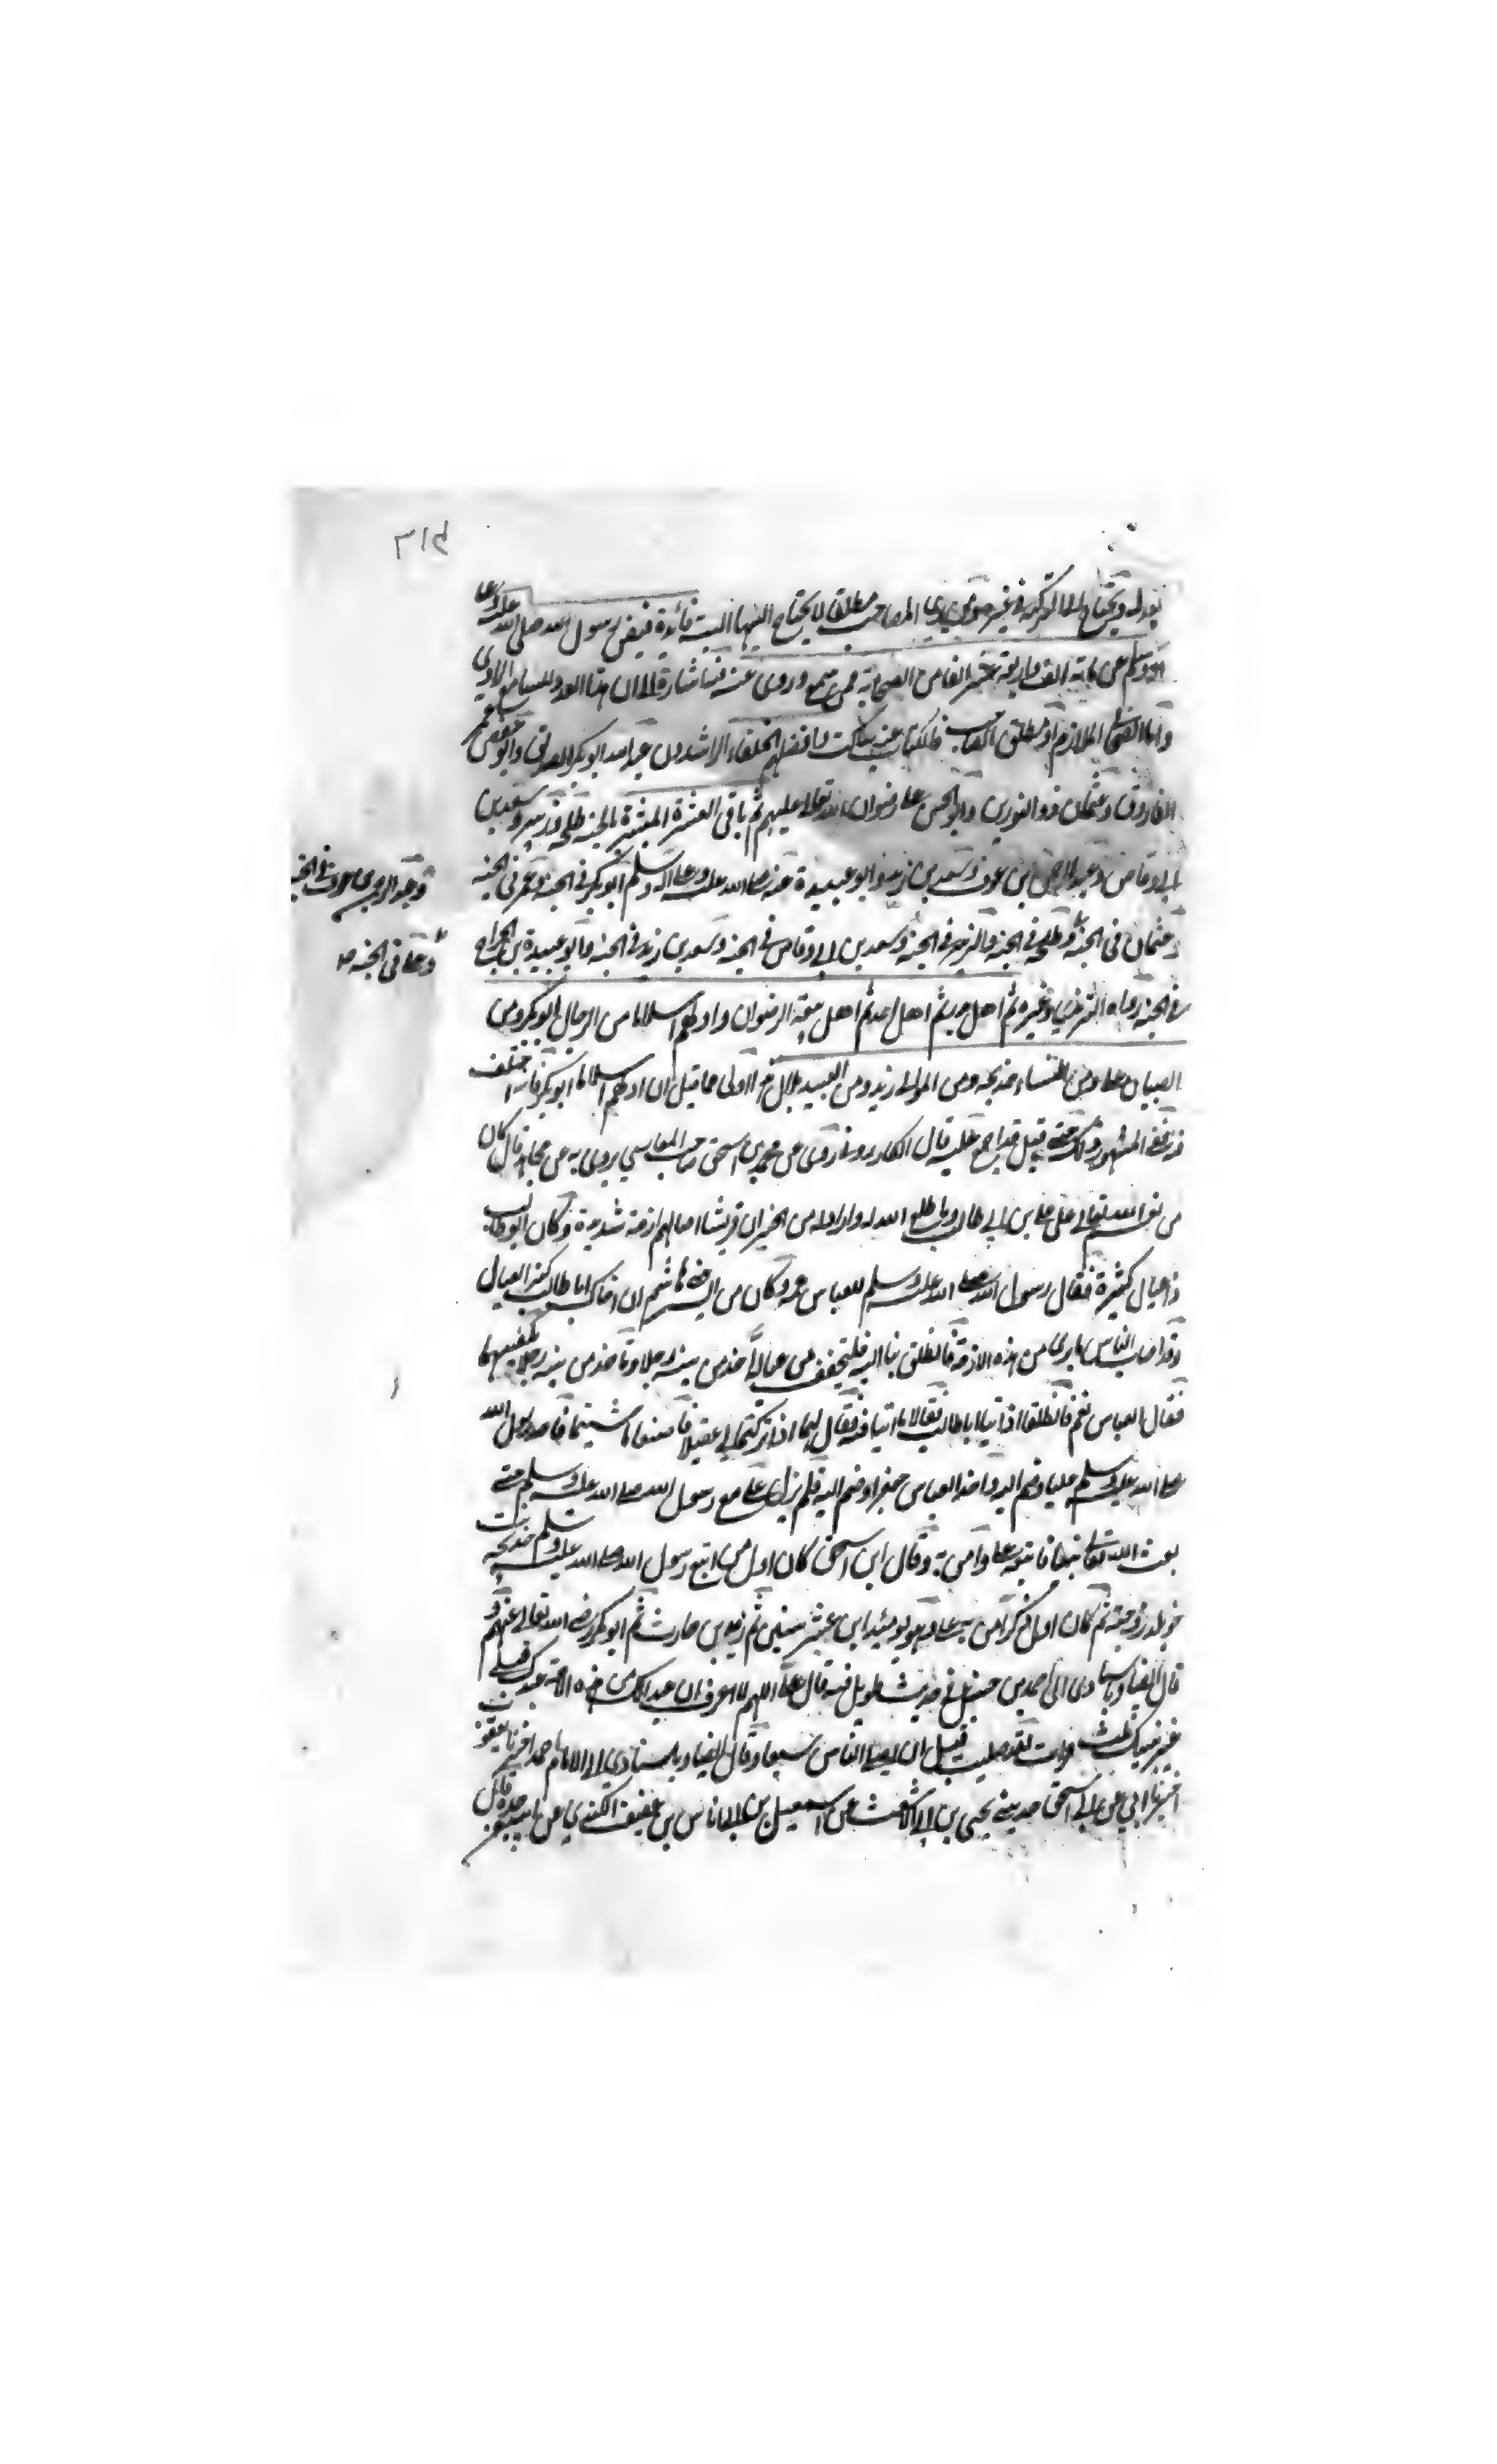 ٣١٤
ويحتاج الى التزكية في غير الصحابي المصاحب مطلقا لا يحتاج اليها البتة فائدة قبض رسول الله صلى الله عليه وعلى
آله وسلم عن مائة الف واربعة عشر الفا من الصحابة ممن سمع وروى عنه فيه اشارة الى ان هذا العدد للسامع الراوي
واما الصحابي الملازم او مطلق الصاحب فالكتاب عنه ساكت وافضلهم الخلفاء الراشدون عبد الله ابو بكر الصديق وابو حفص عمر
الفاروق وعثمان ذو النورين وابو الحسن علي رضوان الله تعالى عليهم ثم باقي العشرة المبشرة بالجنة طلحة وزبير وسعد بن
ابي وقاص وعبد الرحمن بن عوف وسعيد بن زيد وابو عبيدة عنه صلى الله عليه وعلى آله وسلم ابو بكر في الجنة وعمر في الجنة
وعبد الرحمن بن عوف في الجنة
وعثمان في الجنة وطلحة في الجنة والزبير في الجنة وسعد بن ابي وقاص في الجنة وسعيد بن زيد في الجنة وابو عبيدة بن الجراح
وعلي في الجنة
في الجنة رواه الترمذي وغيره ثم اهل بدر ثم اهل احد ثم اهل بيعة الرضوان واولهم اسلاما من الرجال ابو بكر ومن
الصبيان علي ومن النساء خديجة ومن الموالي زيد ومن العبيد بلال هو الاولى مما قيل ان اولهم اسلاما ابو بكر فانه اختلف
فيه المشهور قيل قد اجمع عليه قال الكازروني روى عن محمد بن اسحق صاحب المغازي يرويه عن مجاهد قال كان
من نعم الله تعالى على علي بن ابي طالب وما صنع الله له واراد له من الخير ان قريشا اصابتهم ازمة شديدة وكان ابو طالب
ذا عيال كثيرة فقال رسول الله صلى الله عليه وسلم للعباس عمه وكان من ايسر بني هاشم ان اخاك ابا طالب كثير العيال
وقد اصاب الناس ما ترى من هذه الازمة فانطلق بنا اليه فلنخفف من عياله آخذ من بنيه رجلا وتأخذ من بنيه رجلا فنكفيهما
فقال العباس نعم فانطلقا اذ اتيا ابا طالب فقالا ما اتيا فيه فقال لهما اذا تركتما لي عقيلا فاصنعا ما شئتما فاخذ رسول الله
صلى الله عليه وسلم عليا وضم اليه واخذ العباس جعفرا وضم اليه فلم يزل علي مع رسول الله صلى الله عليه وسلم حتى
بعث الله تعالى نبيا فاتبعه علي وآمن به وقال ابن اسحق كان اول من اتبع رسول الله صلى الله عليه وسلم خديجة بنت
خويلد زوجته ثم كان اول ذكر آمن به علي وهو يومئذ ابن عشر سنين ثم زيد بن حارث ثم ابو بكر رضي الله تعالى عنهم و
قال ايضا وباسنادي الى احمد بن حنبل في حديث طويل فيه قال علي اللهم لا اعرف ان عبدا لك من هذه الامة عبدك قبلي
غير نبيك ثلث مرات لقد صليت قبل ان يصلي الناس سبعا وقال ايضا وباسنادي الى الامام احمد اخبرنا يعقوب
اخبرنا ابي عن ابي اسحق حدثني يحيى بن ابي الاشعث عن اسمعيل بن اياس بن عفيف الكندي عن ابيه عن جده قال